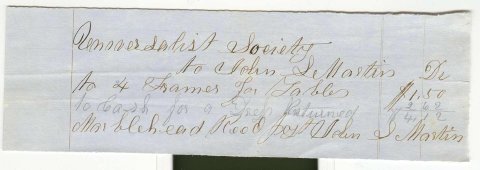 Universalist Society
to John S Martin Dr
to 4 Frames for Tables $1.50
to Cash for a returned 2 62
$4 12
Marblehead Recd John S Martin